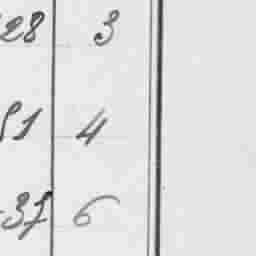 28 3
51 4
37 6